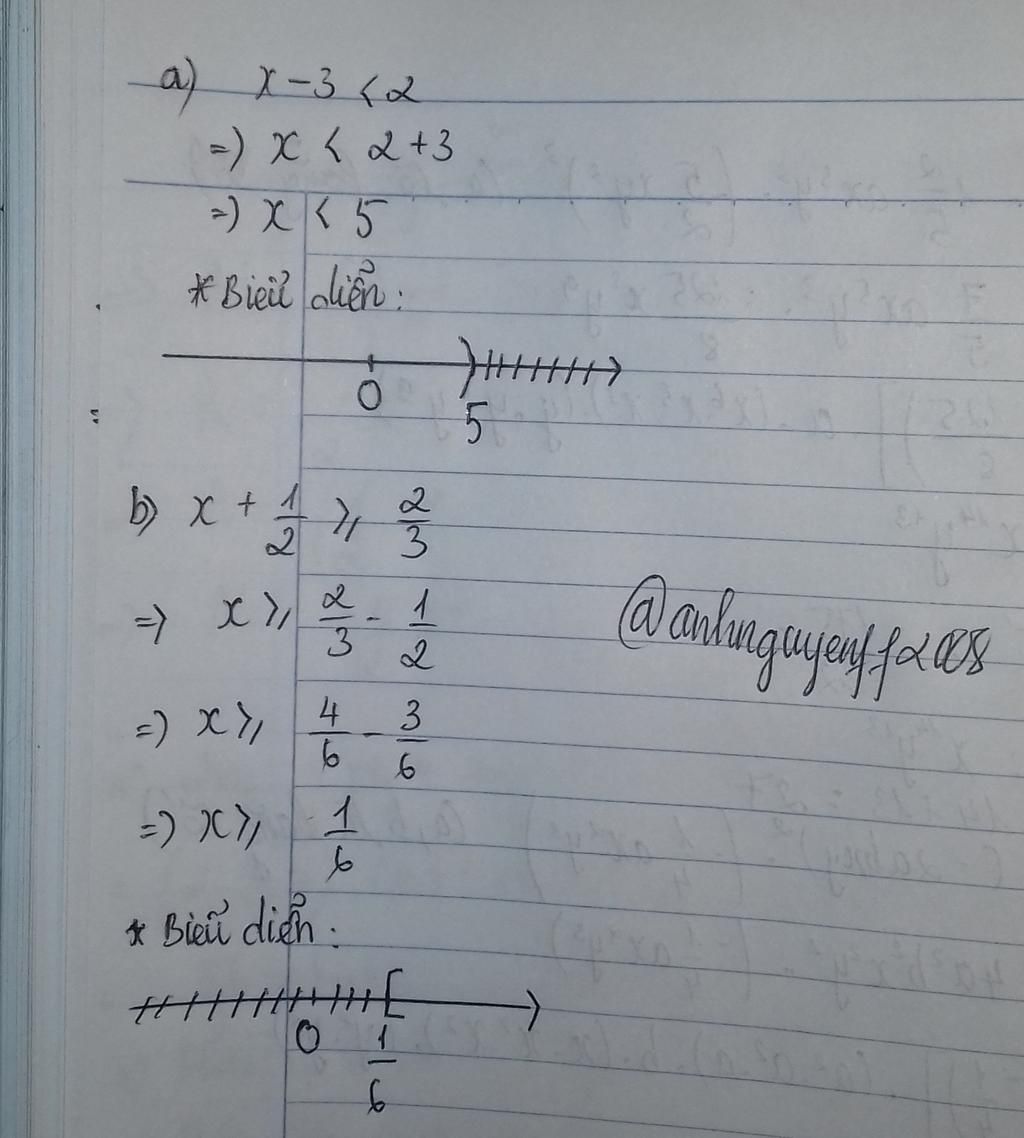 a) x - 3 < 2
=> x < 2 + 3
=> x < 5
* Biểu diễn:
0 5
b) x + 1/2 ≥ 2/3
=> x ≥ 2/3 - 1/2
=> x ≥ 4/6 - 3/6
=> x ≥ 1/6
@anhnguyenff2008
* Biểu diễn:
0 1/6